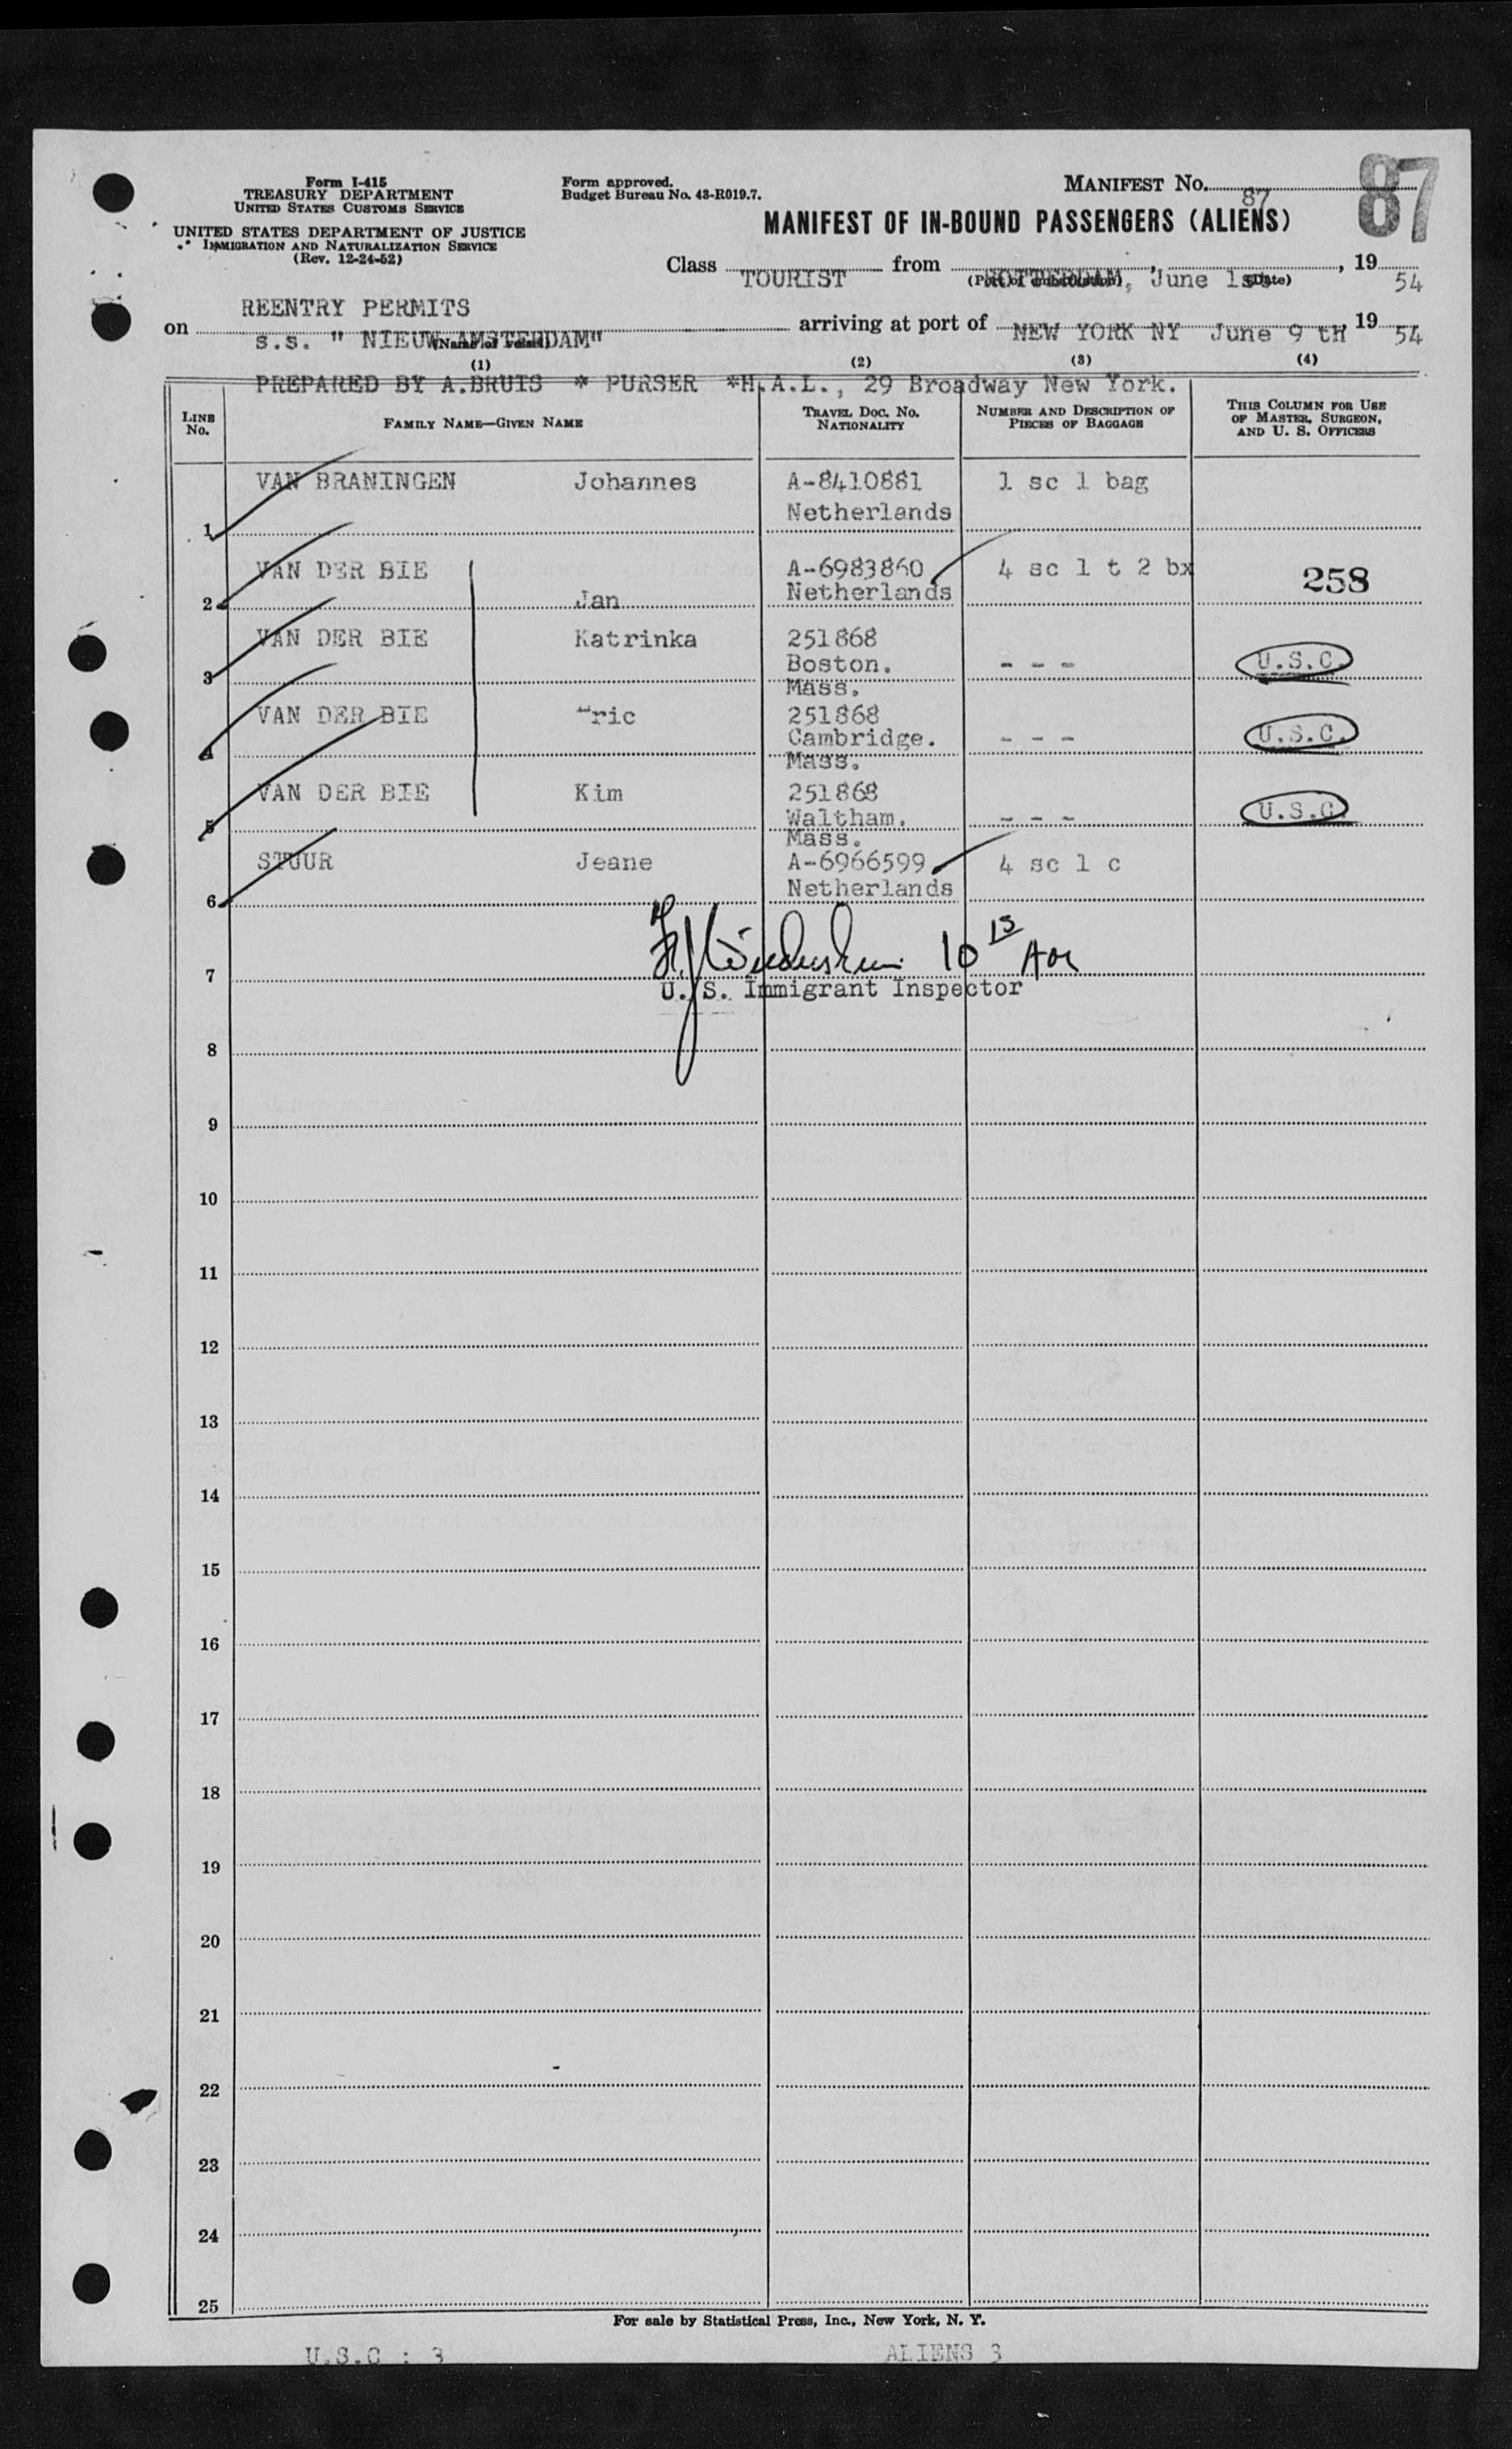 Form I-415
TREASURY DEPARTMENT
UNITED STATES CUSTOMS SERVICE
UNITED STATES DEPARTMENT OF JUSTICE
IMMIGRATION AND NATURALIZATION SERVICE
(Rev. 12-24-52)
Form approved.
Budget Bureau No. 43-R019.7.
MANIFEST No. 87
87
MANIFEST OF IN-BOUND PASSENGERS (ALIENS)
Class TOURIST from ROTTERDAM, June 1st, 19 54
(Port of embarkation) (Date)
REENTRY PERMITS
on s.s. " NIEUW AMSTERDAM" arriving at port of NEW YORK NY June 9 th 19 54
(Name of vessel)
(1) (2) (3) (4)
PREPARED BY A.BRUIS * PURSER *H.A.L., 29 Broadway New York.
LINE No. FAMILY NAME—GIVEN NAME TRAVEL DOC. NO. NATIONALITY NUMBER AND DESCRIPTION OF PIECES OF BAGGAGE THIS COLUMN FOR USE OF MASTER, SURGEON, AND U. S. OFFICERS
VAN BRANINGEN Johannes A-8410881 1 sc 1 bag
1 Netherlands
VAN DER BIE A-6983860 4 sc 1 t 2 bx 258
2 Jan Netherlands
VAN DER BIE Katrinka 251868
3 Boston. - - - U.S.C.
Mass.
VAN DER BIE ric 251868
4 Cambridge. - - - U.S.C.
Mass.
VAN DER BIE Kim 251868
5 Waltham. - - - U.S.C.
Mass.
STUUR Jeane A-6966599 4 sc 1 c
6 Netherlands
10 15 AM
7
U. S. Immigrant Inspector
8
9
10
11
12
13
14
15
16
17
18
19
20
21
22
23
24
25
For sale by Statistical Press, Inc., New York, N. Y.
U.S.C : 3 ALIENS 3